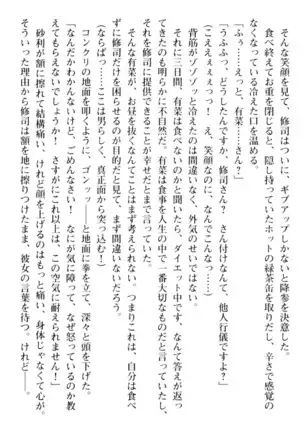 そんな笑顔を見て、修司はついに、ギブアップしかないと降参を決意した。
食べ終えてお重を閉じると、隠し持っていたホットの緑茶缶を取りだし、辛さで感覚の
なくなっている冷えた口を温める。
「ふぅ……えっと、有菜……さん?」
「うふふっ、どうしたんですか、修司さん? さん付けなんて、他人行儀ですよ?」
(こええぇぇぇっ! え、笑顔なのに、なんでこんなっ……)
背筋がゾゾッと冷えたのは間違いなく、外気のせいではない。
それに三日間、有菜は食べないのかと聞いたら、ダイエット中です、なんて答えが返っ
てきたのも明らかに不自然だ。有菜は食事を人生の中で一番大切なものだと言っていたし、
それを修司に提供できることが幸せだとまで言っていた。
そんな有菜が、お昼を抜くなんてことはまず考えられない。つまりこれは、自分は食べ
ずに修司だけを困らせるのが目的だと見て、まず間違いないだろう。
(ならばっ……ここは男らしく、真正面から突っ込む!)
コンクリの地面を叩くように、ゴンッッ!――と地面に拳を立て、深々と頭を下げた。
「なんだかわかんないけど、ごめんなさい! なにが気に障って、なぜ怒っているのか教
えてもらえないでしょうか! さすがにこれ以上は、この空気に耐えられません!」
砂利が額に擦れて結構痛い、けれど顔を上げるのはもっと痛い、身体じゃなくて心が。
そういった理由から修司は額を地に擦りつけたまま、彼女の言葉を待つ。けれど――。